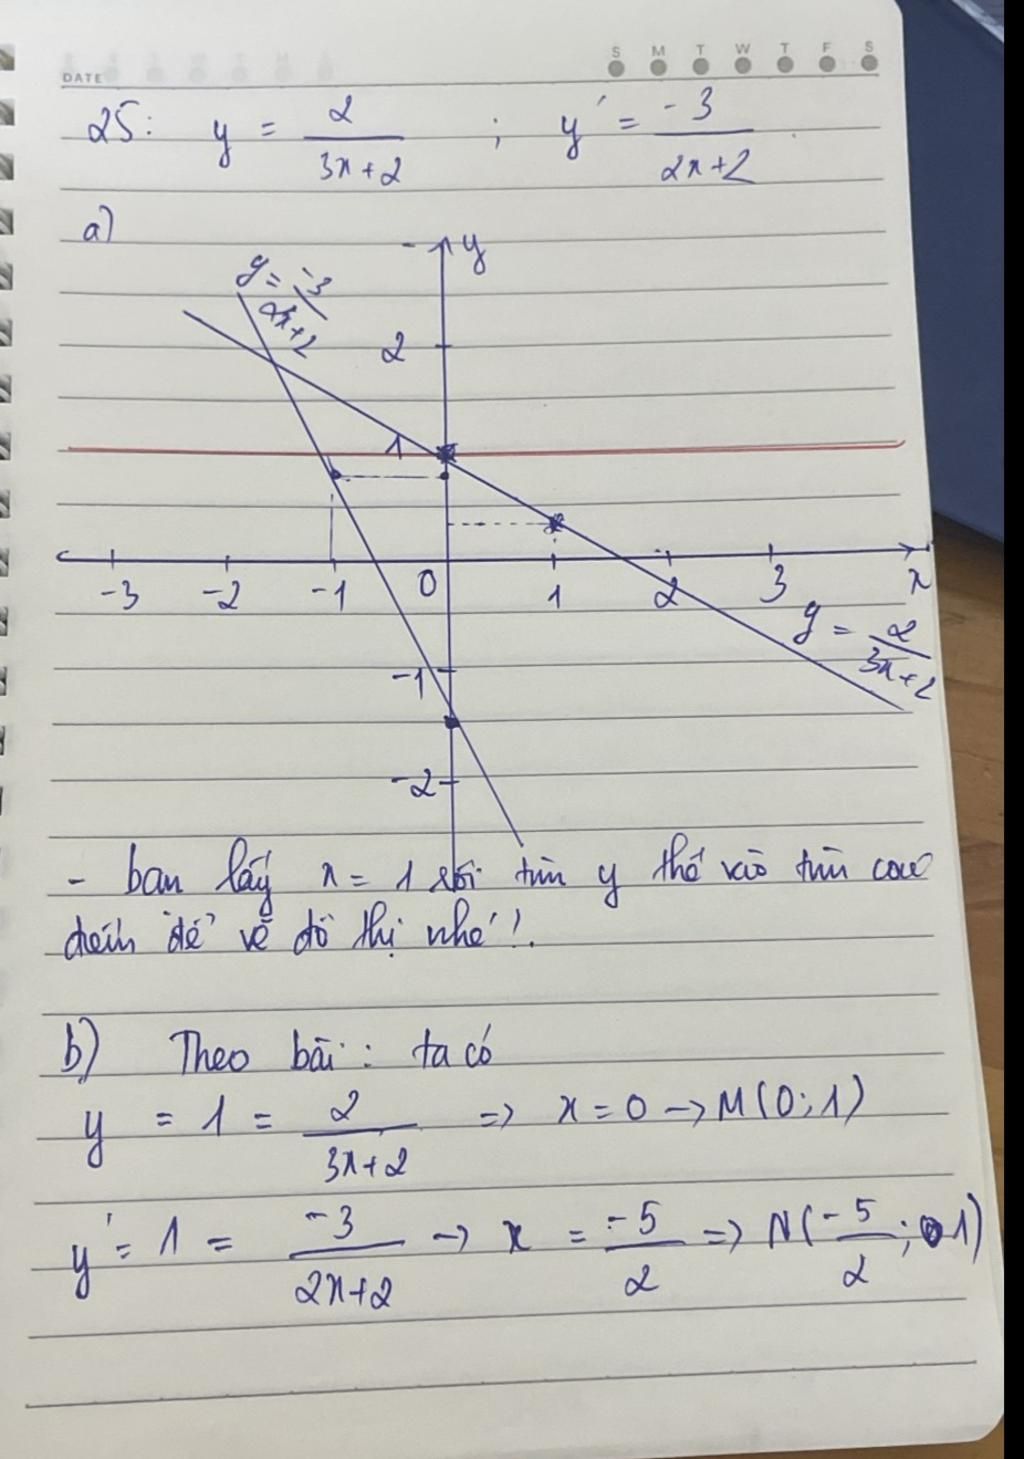 DATE
S M T W T F S
25: y = 2/(3x+2) ; y' = -3/(2x+2)
a)
y
y = -3/(2x+2)
2
1
-3 -2 -1 0 1 2 3 x
y = 2/(3x+2)
-1
-2
- bạn lấy x = 1 rồi tìm y thế vào tìm các
điểm để vẽ đồ thị nhé!.
b) Theo bài: ta có
y = 1 = 2/(3x+2) => x = 0 → M(0;1)
y' = 1 = -3/(2x+2) → x = -5/2 => N(-5/2; 1)